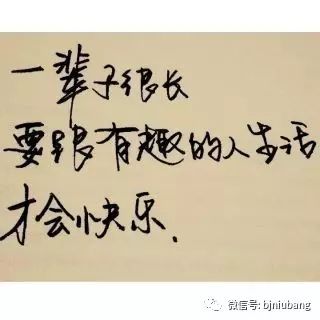 一辈子很长
要跟有趣的人生活
才会快乐.
微信号: bjniubang